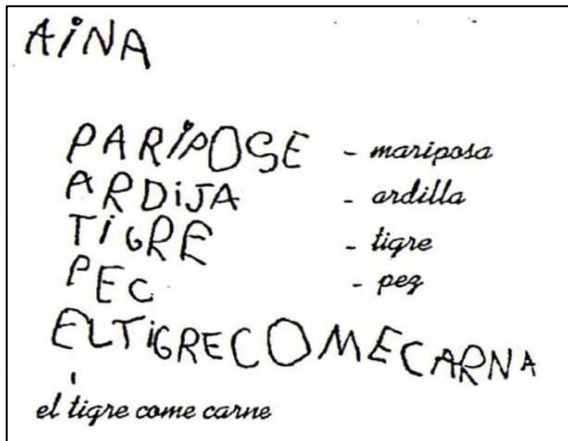 AiNA
PARiPOSE - mariposa
ARDiJA - ardilla
TiGRE - tigre
PEC - pez
ELTiGRECOMECARNA
el tigre come carne